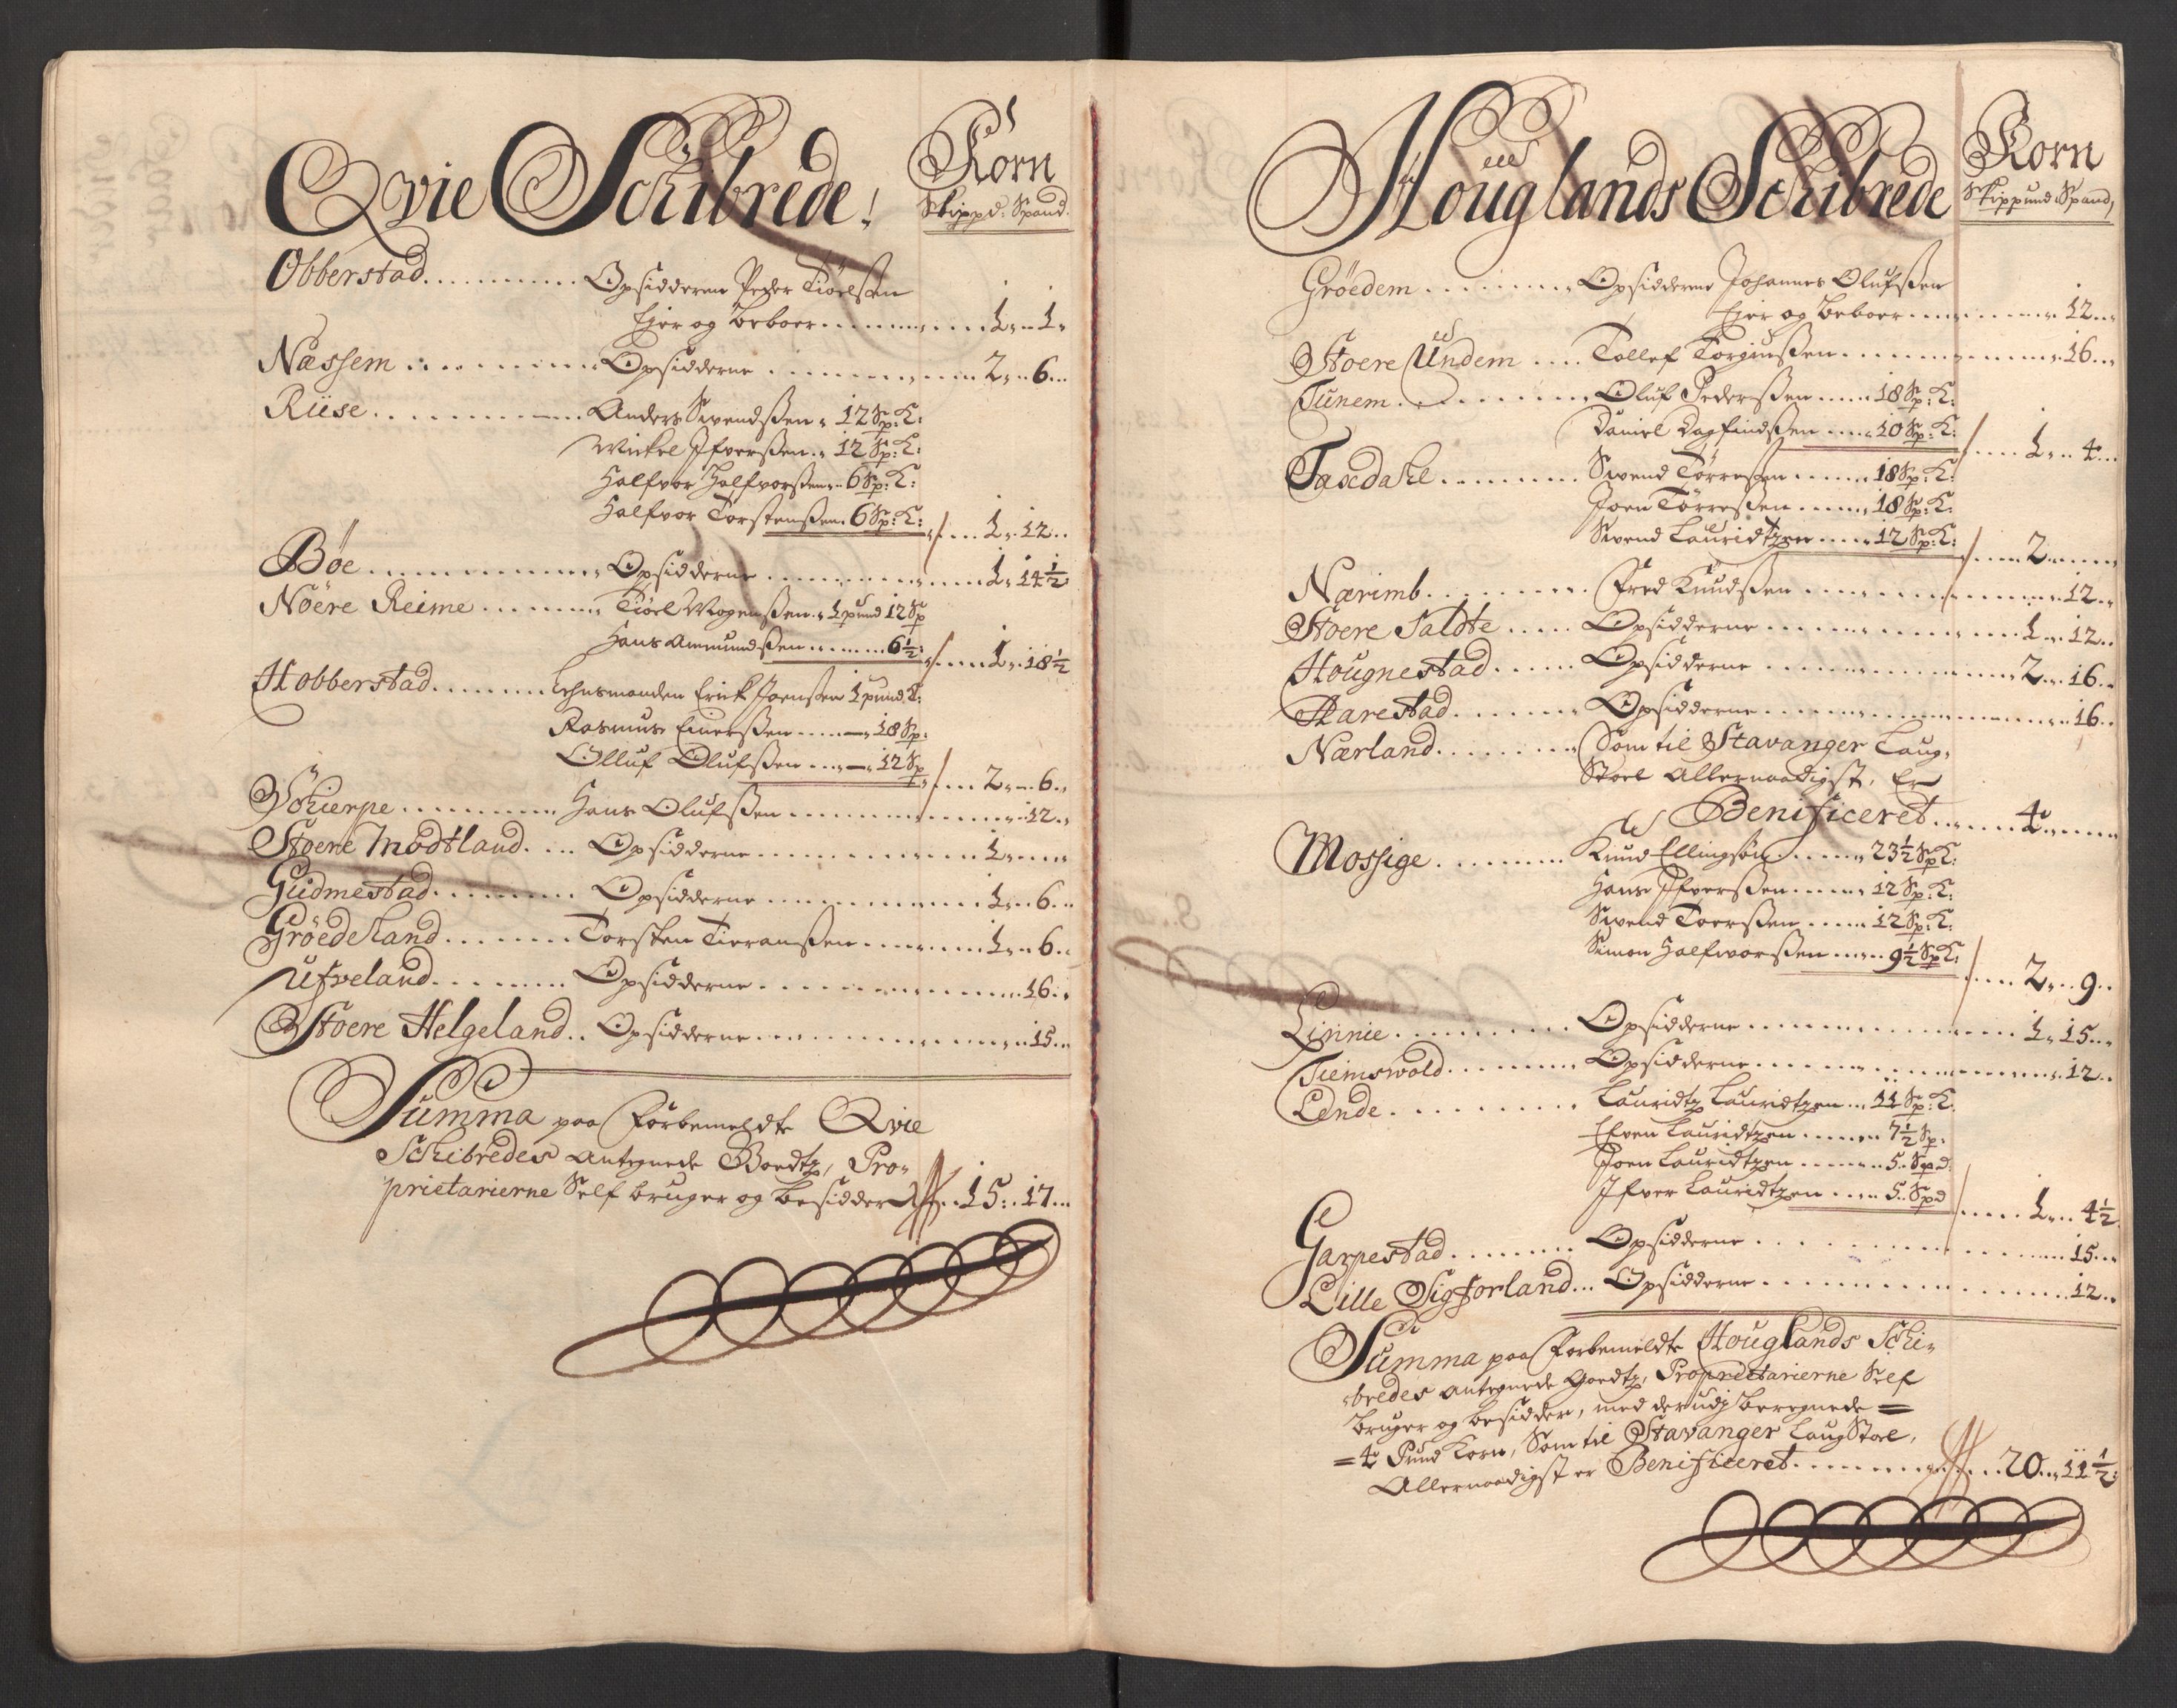 Qvie Schibrede!
Korn
Skippd: Spand.
Obberstad.......... Opsidderen Peder Tiøelsen
Ejer og beboer.......... 1 „ 1 „
Næssem.......... Opsidderne .......... 2 „ 6 „
Riise.......... Anders Swendsßen „ 12 Sp: K:
Mickel Ifverßen „ 12 Sp: K:
Halfvor Halfvorßen „ 6 Sp: K:
Halfvor Torstenßen. 6 Sp: K: /.... 1 „ 12 „
Bøe.......... Opsidderne .......... 1 „ 14½
Nöere Reime.......... Tiøel Mogenßen „ 1 pund 12 Sp
Hans Ammundßen ...... 6½ /.... 1 „ 18½
Hobberstad.......... Lehnsmanden Erick Joenßen 1 pund K:
Rasmus Einerßen ..... 18 Sp:
Olluf Olufßen ..... 12 Sp /.... 2 „ 6 „
Schierpe.......... Hans Olufßen .......... 12 „
Stoere Modtland.... Opsidderne .......... 1 „
Gudmestad.......... Opsidderne .......... 1 „ 6 „
Gröedeland.......... Torsten Tieranßen .......... 1 „ 6 „
Ufveland.......... Opsidderne .......... 16 „
Stoere Helgeland.. Opsidderne .......... 15 „
Summa paa Forbemeldte Qvie
Schibredes antegnede Goedtz, Pro-
prietarierne Self bruger og besidder .. 15 „ 17 „
Houglands Schibrede
Korn
Skippund Spand,
Gröedem.......... Opsidderne Johannes Olufßen
Ejer og beboer.......... 12 „
Stoere Undem .... Tollef Torgiusßen .......... 16 „
Tunem.......... Oluf Pederßen ..... 18 Sp: K:
Daniel Dagfindßen .... 10 Sp: K: /.... 1 „ 4 „
Taxdahl.......... Swend Törresßen ..... 18 Sp: K:
Joen Törresßen ..... 18 Sp: K:
Swend Lauridtzen ..... 12 Sp: K: /.... 2 „
Nærimb.......... Fred Knudßen .......... 12 „
Stoere Saldte ..... Opsidderne .......... 1 „ 12 „
Hougnestad ..... Opsidderne .......... 2 „ 16 „
Harestad.......... Opsidderne .......... 16 „
Nærland.......... Som til Stavanger Laug-
Stoel Allernaadigst, Er
Benificeret ...... 4 „
Mossige.......... Knud Ellingsøn ..... 23½ Sp K:
Hans Ifverßen ..... 12 Sp: K:
Swend Toerßen ..... 12 Sp: K:
Simon Halfvorßen ..... 9½ Sp K: /.... 2 „ 9 „
Linnie.......... Opsidderne .......... 1 „ 15 „
Tiemswold.......... Opsidderne .......... 12 „
Lende.......... Lauridtz Lauridtzen ... 11 Sp: K.
Efven Lauridtzen ..... 7½ Sp:
Joen Lauridtzen ..... 5 „ Spd:
Ifver Lauridtzen ..... 5 „ Spd /.... 1 „ 4½
Garpestad.......... Opsidderne .......... 15 „
Lille Sigforland... Opsidderne .......... 12 „
Summa paa Forbemeldte Houglands Schi-
bredes antegnede Goedtz, Proprietarierne Self
bruger og besidder, med derudj beregnede =
= 4 Pund Korn, Som til Stavanger Laug Stoel,
Allernaadigst er Benificeret .......... 20 „ 11½